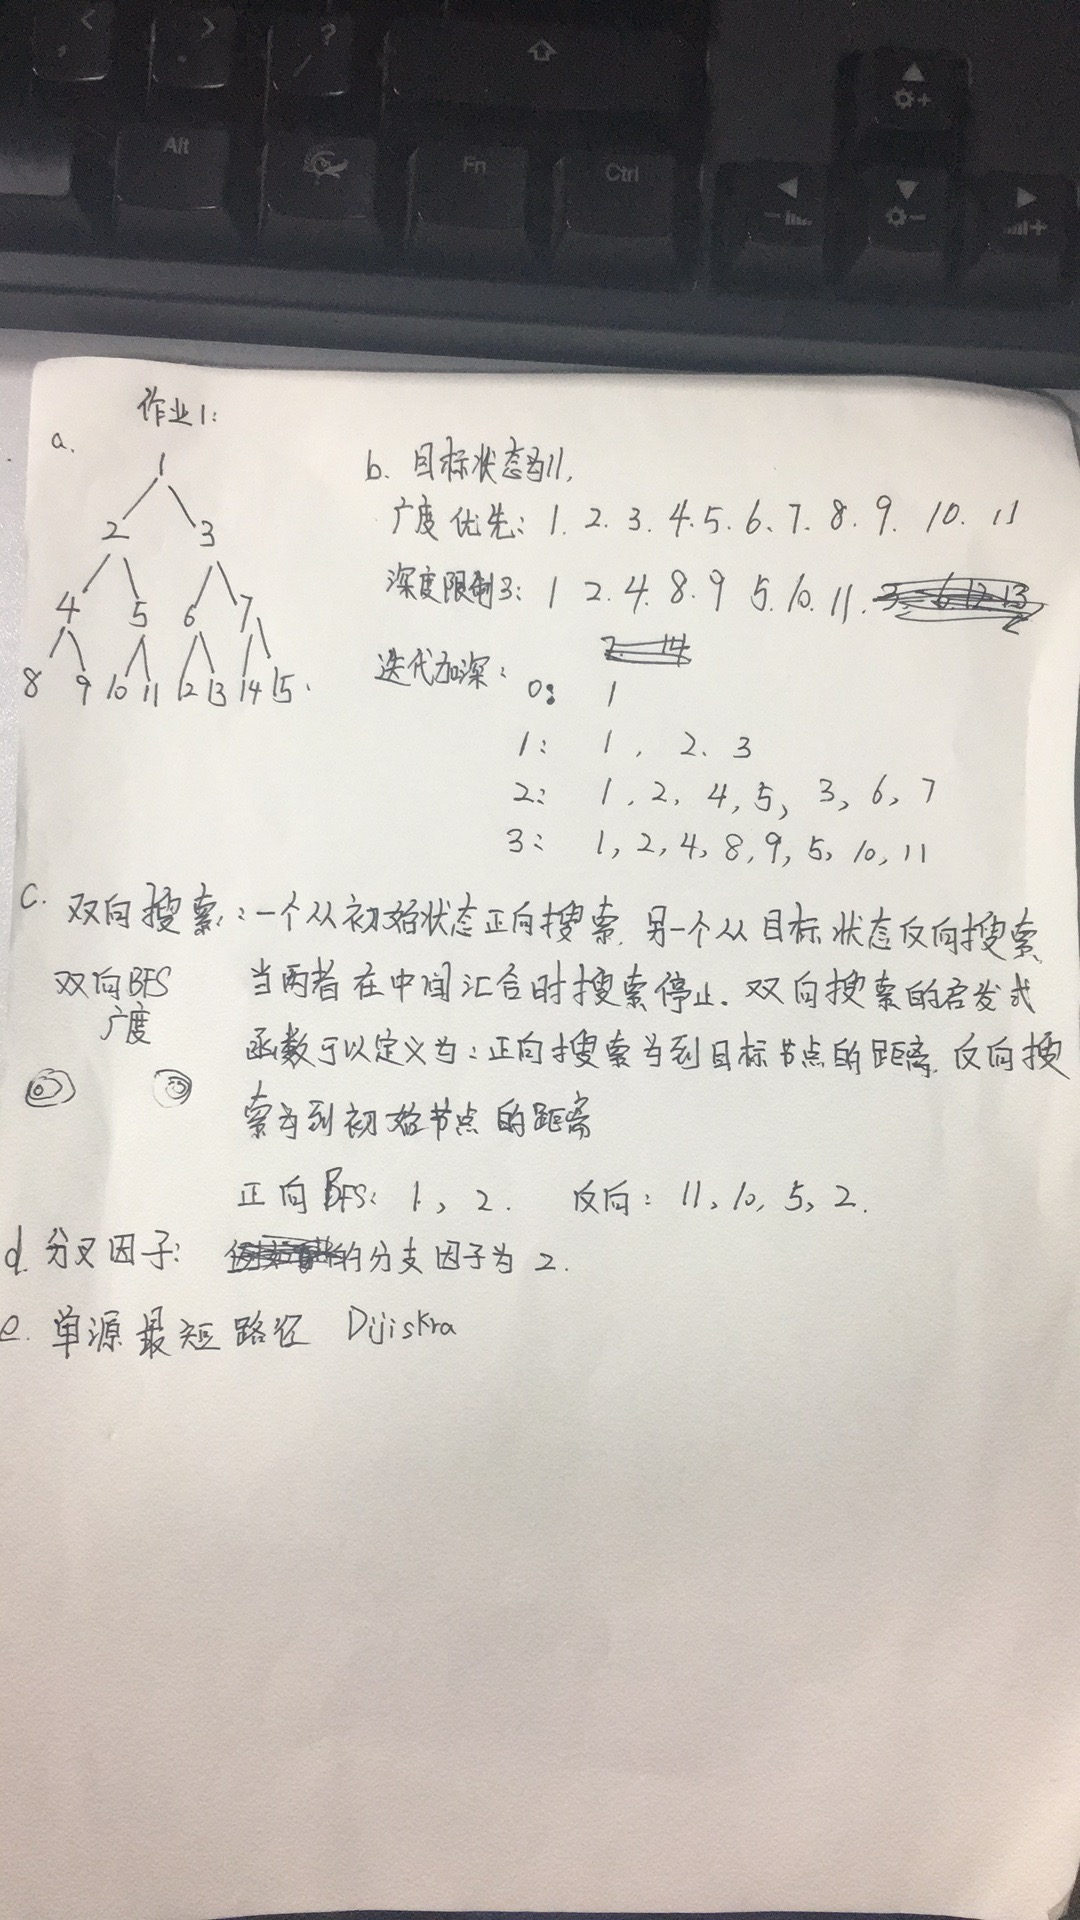 <
,
>
.
?
/
Alt
Fn
Ctrl
作业1:
a.
1
2 3
4 5 6 7
8 9 10 11 12 13 14 15.
b. 目标状态为11,
广度优先: 1. 2. 3. 4. 5. 6. 7. 8. 9. 10. 11
深度限制3: 1 2. 4. 8. 9 5. 10. 11.
迭代加深:
0: 1
1: 1, 2. 3
2: 1, 2, 4, 5, 3, 6, 7
3: 1, 2, 4, 8, 9, 5, 10, 11
c. 双向搜索:一个从初始状态正向搜索,另一个从目标状态反向搜索,
双向BFS 当两者在中间汇合时搜索停止.双向搜索的启发式
广度
函数可以定义为:正向搜索为到目标节点的距离,反向搜
索为到初始节点的距离
正向BFS: 1, 2. 反向: 11, 10, 5, 2.
d. 分叉因子: 的分支因子为2.
e. 单源最短路径 Dijiskra